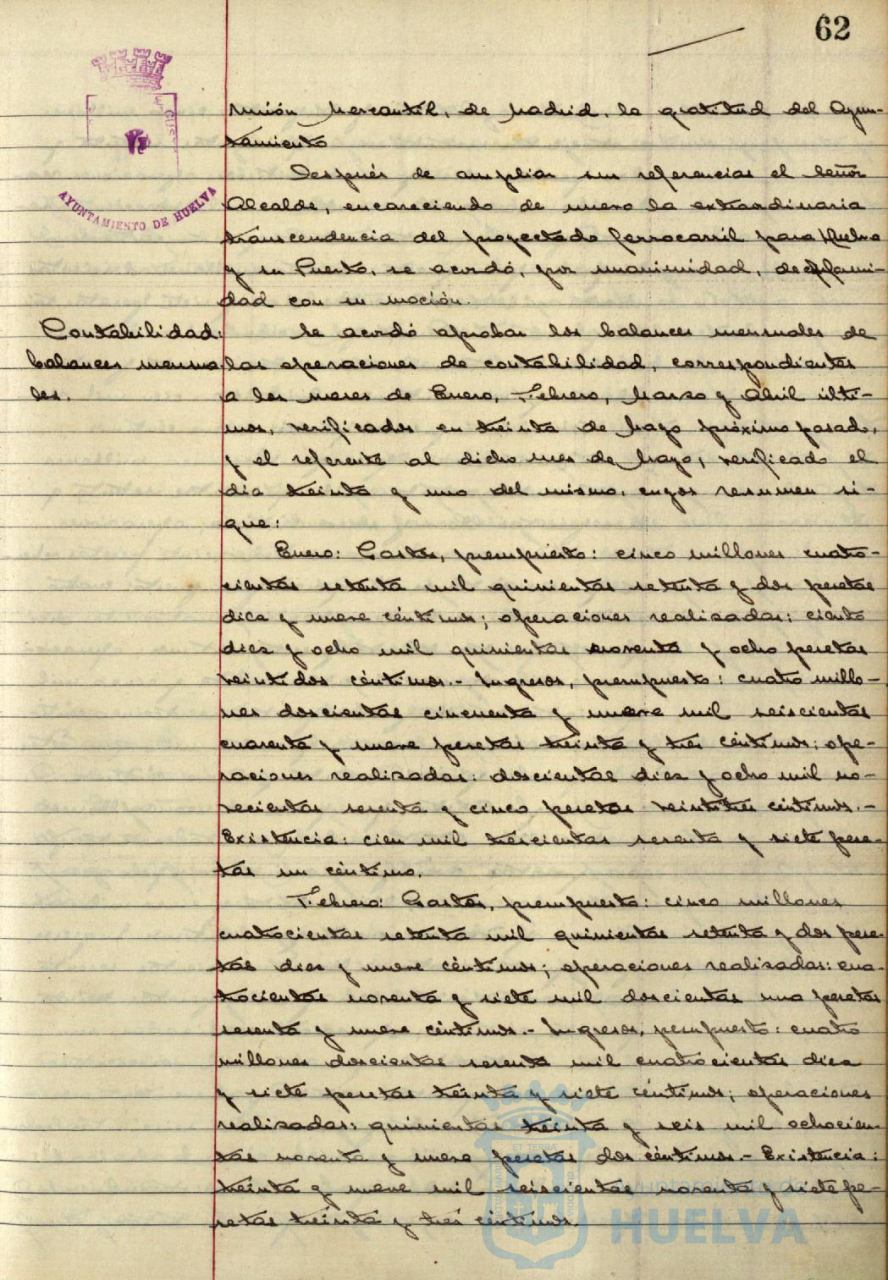 62
AYUNTAMIENTO DE HUELVA
Unión Mercantil, de Madrid, la gratitud del Ayun-
tamiento
Después de ampliar sus referencias el Señor
Alcalde, encareciendo de nuevo la extraordinaria
transcendencia del proyectado ferrocarril para Huelva
y su Puerto, se acordó, por unanimidad, de conformi-
dad con su moción.
Contabilidad:
balances mensua
les.
Se acordó aprobar los balances mensuales de
las operaciones de contabilidad, correspondientes
a los meses de Enero, Febrero, Marzo y Abril últi-
mos, verificados en treinta de Mayo próximo pasado,
y el referente al dicho mes de Mayo, verificado el
día treinta y uno del mismo, cuyos resumen si-
gue:
Enero: Gastos, presupuesto: cinco millones cuatro-
cientas setenta mil quinientas setenta y dos pesetas
diez y nueve céntimos; operaciones realizadas: ciento
diez y ocho mil quinientas noventa y ocho pesetas
veintidos céntimos.- Ingresos, presupuesto: cuatro millo-
nes doscientas cincuenta y nueve mil seiscientas
cuarenta y nueve pesetas treinta y tres céntimos; ope-
raciones realizadas: doscientas diez y ocho mil no-
vecientas sesenta y cinco pesetas veintitres céntimos.-
Existencia: cien mil trescientas sesenta y siete pese-
tas un céntimo.
Febrero: Gastos, presupuesto: cinco millones
cuatrocientas setenta mil quinientas setenta y dos pese-
tas diez y nueve céntimos; operaciones realizadas: cua-
trocientas noventa y siete mil doscientas una pesetas
sesenta y nueve céntimos.- Ingresos, presupuesto: cuatro
millones doscientas sesenta mil cuatrocientas diez
y siete pesetas treinta y siete céntimos; operaciones
realizadas: quinientas treinta y seis mil ochocien-
tas noventa y nueve pesetas dos céntimos.- Existencia:
treinta y nueve mil seiscientas noventa y siete pe-
setas treinta y tres céntimos.
HUELVA